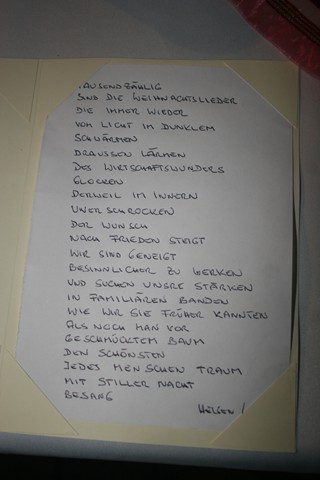 TAUSENDZÄHLIG
SIND DIE WEIHNACHTSLIEDER
DIE IMMER WIEDER
VOM LICHT IM DUNKLEM
SCHWÄRMEN
DRAUSSEN LÄRMEN
DES WIRTSCHAFTSWUNDERS
GLOCKEN
DERWEIL IM INNERN
UNERSCHROCKEN
DER WUNSCH
NACH FRIEDEN STEIGT
WIR SIND GENEIGT
BESINNLICHER ZU WERKEN
UND SUCHEN UNSRE STÄRKEN
IN FAMILIÄREN BANDEN
WIE WIR SIE FRÜHER KANNTEN
ALS NOCH MAN VOR
GESCHMÜCKTEM BAUM
DEN SCHÖNSTEN
JEDES MENSCHEN TRAUM
MIT STILLER NACHT
BESANG